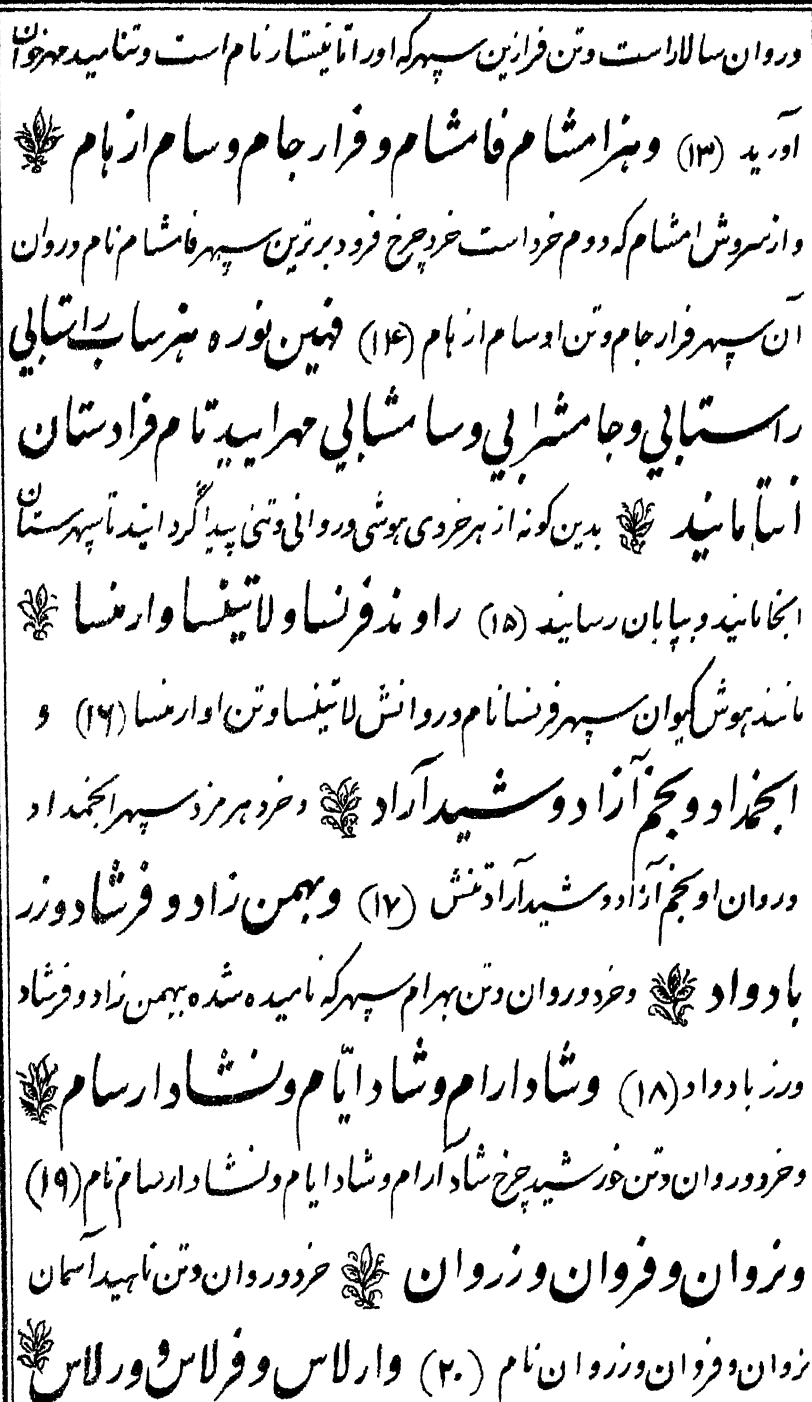 و روان سالار است و تن فرازین سپهر که او را تانیستار نام است و تناسید مهرخوان
آورید (۱۳) و هنز امشام فامشام و فرارجام و سام ازهام
و از سروش امشام که دوم خرد است خرد چرخ فرود برترین سپهر فامشام نام و روان
آن سپهر فرارجام و تن او سام ازهام (۱۴) فهین نوره هنز ساب راستابی
راستبابی و جامشرابی و سامشابی مهرایید تام فرادستان
انتامانید بدین گونه از هر خردی هوشی و روانی و تنی پیدا گردانیند تا سپهرستان
انجامانید و بپایان رسانید (۱۵) راوند فرنسا و لاتینسا وارمنسا
مانند هوش کیوان سپهر فرنسا نام و روانش لاتینسا و تن او ارمنسا (۱۶) و
انجمداد و نجم آزاد و شیدآراد و خرد هرمزد سپهر انجمداد
و روان او نجم آزاد و شیدآراد تنش (۱۷) و بهمن زاد و فرشاد و زر
بادواد و خرد و روان و تن بهرام سپهر که نامیده شده ببهمن زاد و فرشاد
و رز بادواد (۱۸) و شادارام و شادایام و نشادارسام
و خرد و روان و تن خورشید چرخ شاد آرام و شادایام و نشادارسام نام (۱۹)
و نروان و فروان و زروان خرد و روان و تن ناهید آسمان
نروان و فروان و زروان نام (۲۰) و ارلاس و فرلاس و ورلاس